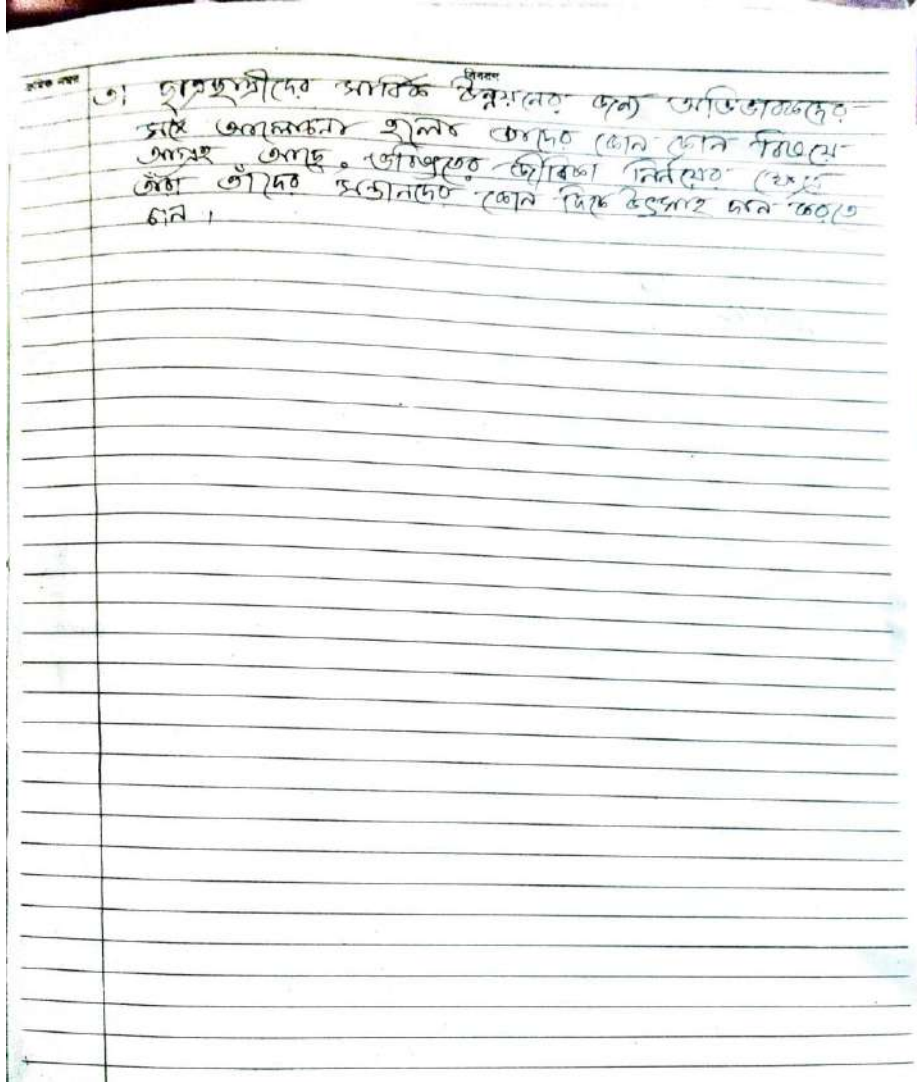 ক্রমিক নম্বর
বিবরণ
৩। ছাত্রছাত্রীদের সার্বিক উন্নয়নের জন্য অভিভাবকদের
সঙ্গে আলোচনা হলো তাদের কোন কোন বিষয়ে
আগ্রহ আছে। ভবিষ্যতের জীবিকা নির্ণয়ের ক্ষেত্রে
তাঁরা তাঁদের সন্তানদের কোন দিকে উৎসাহ দান করতে
চান।